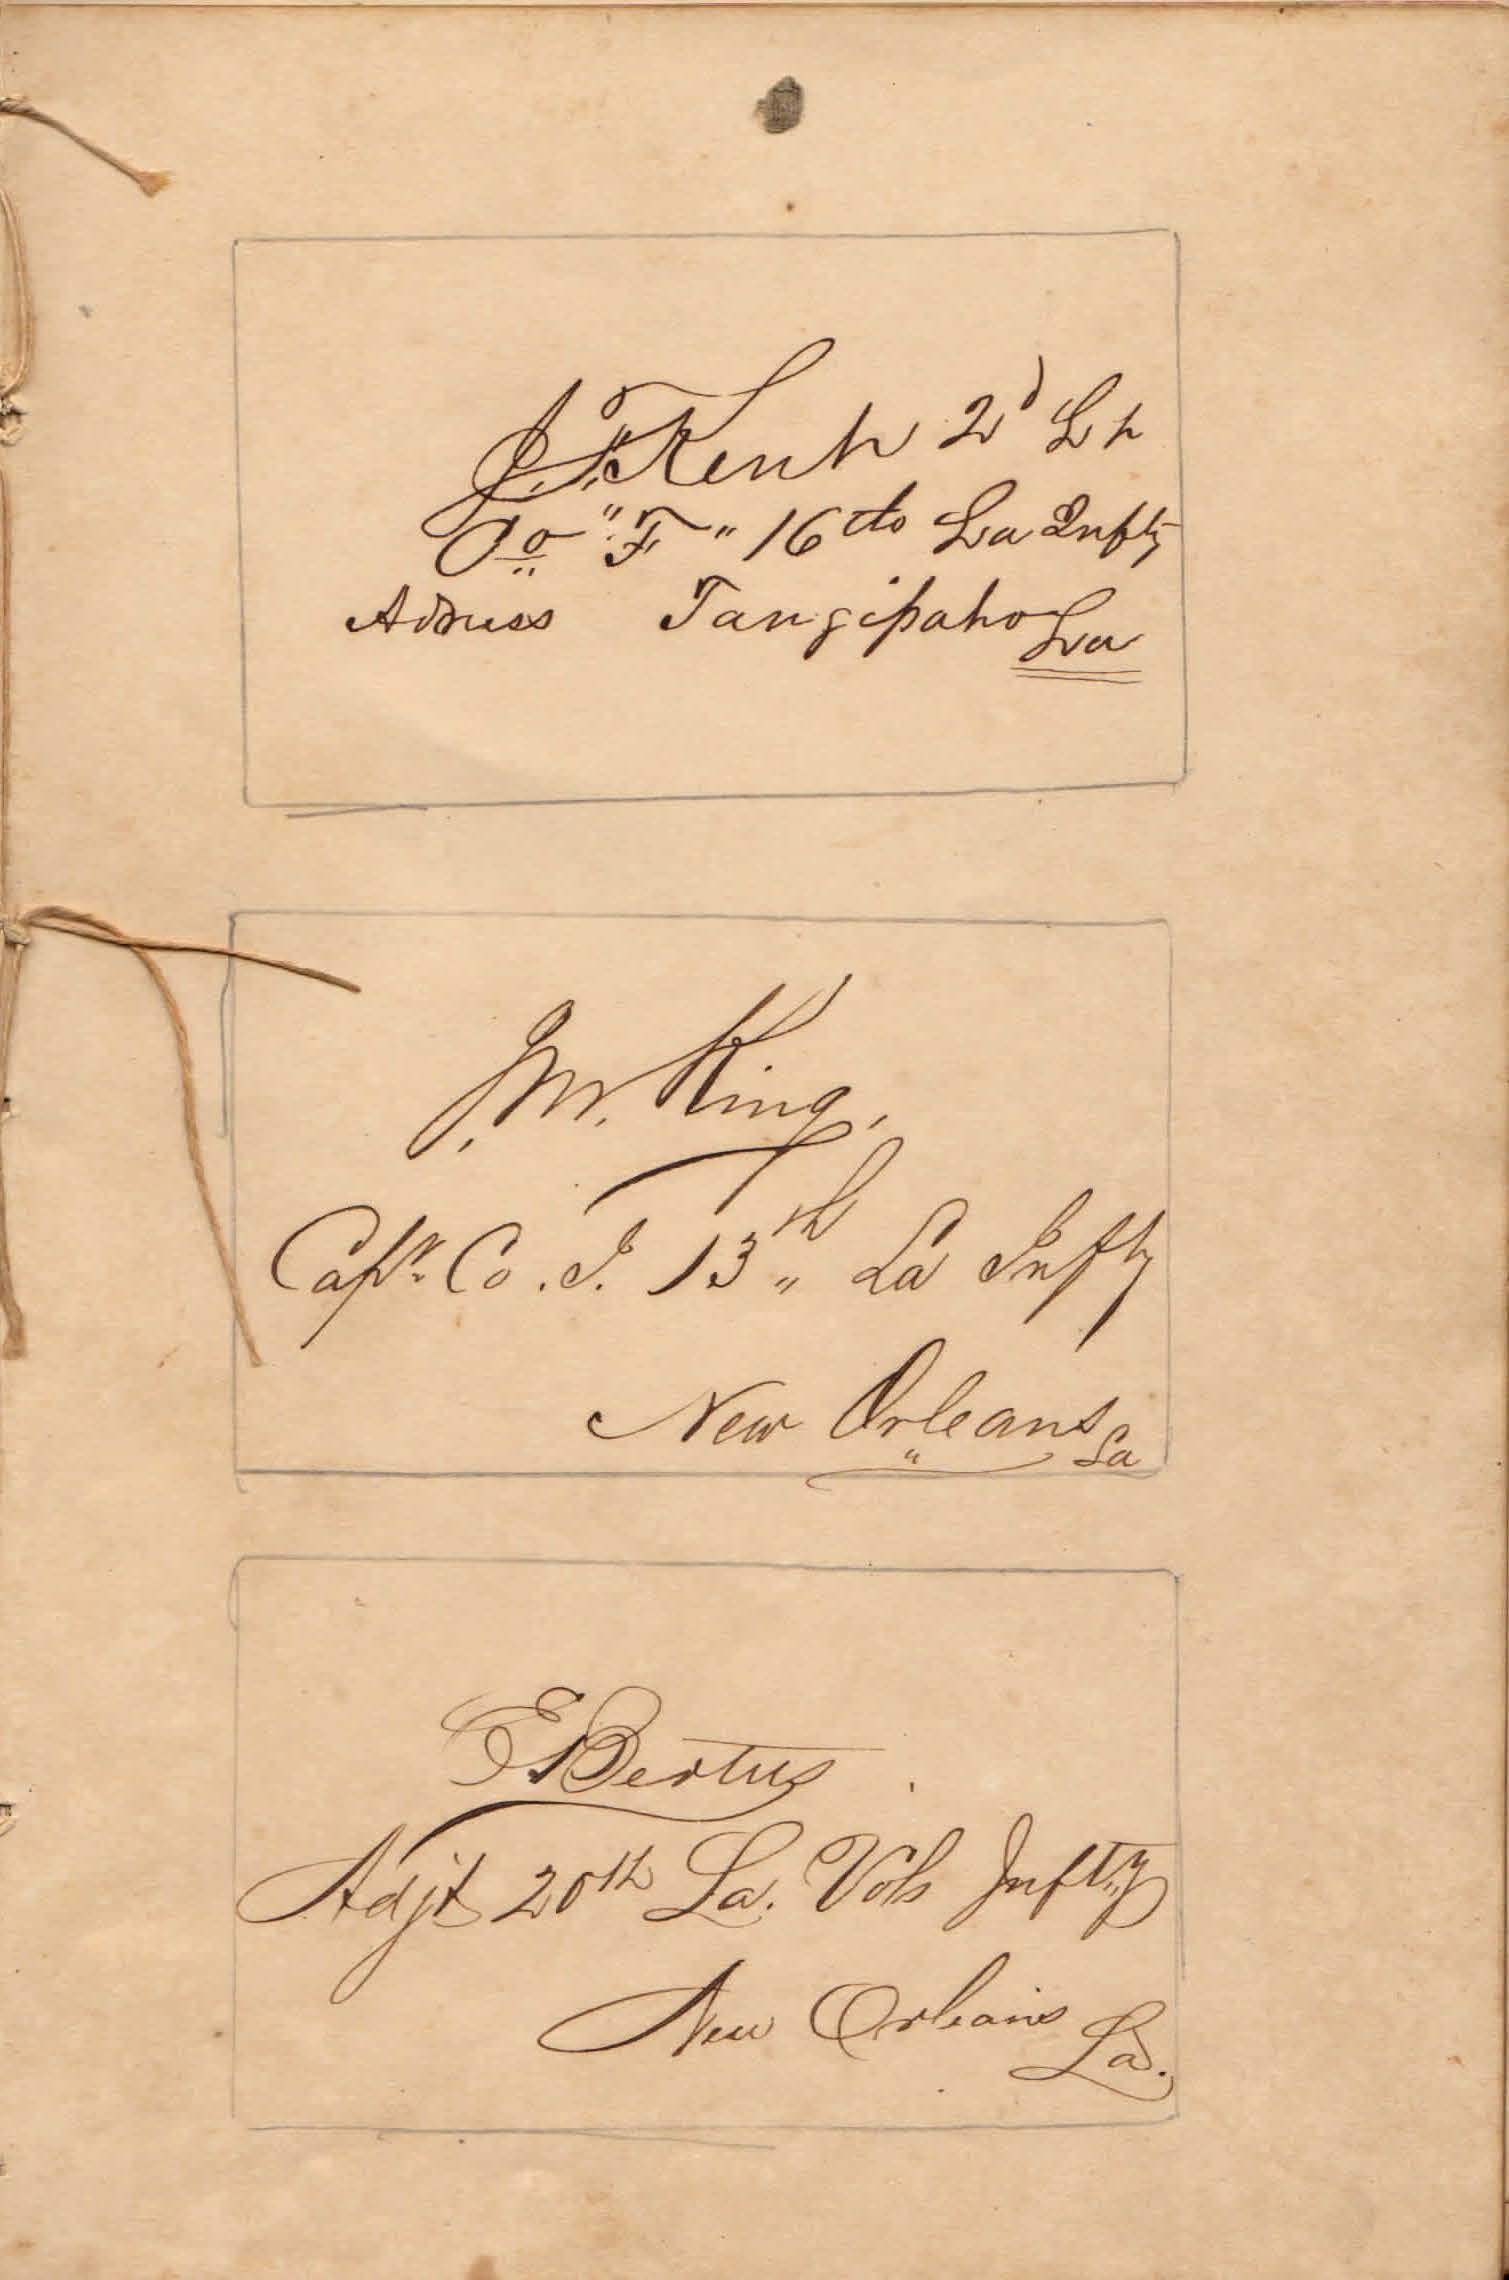 J. T. Kent 2d Lt
Co "F" 16th La Infty
Address Tangipaho La
J. M. King,
Capt. Co. I. 13th La Infty
New Orleans La
E Bertus
Adjt 20th La. Vols Infty
New Orleans La.